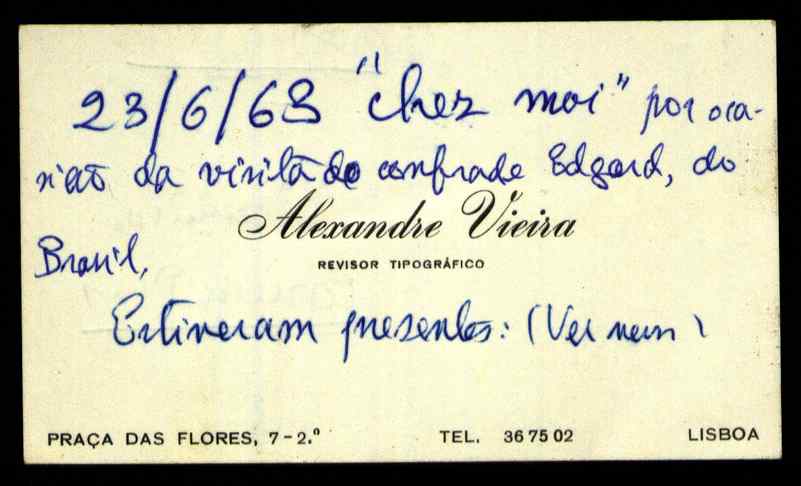 23/6/68 "chez moi" por oca-
sião da visita do confrade Edgard, do
Alexandre Vieira
Brasil,
REVISOR TIPOGRÁFICO
Estiveram presentes: (Ver
PRAÇA DAS FLORES, 7-2.º TEL. 36 75 02 LISBOA